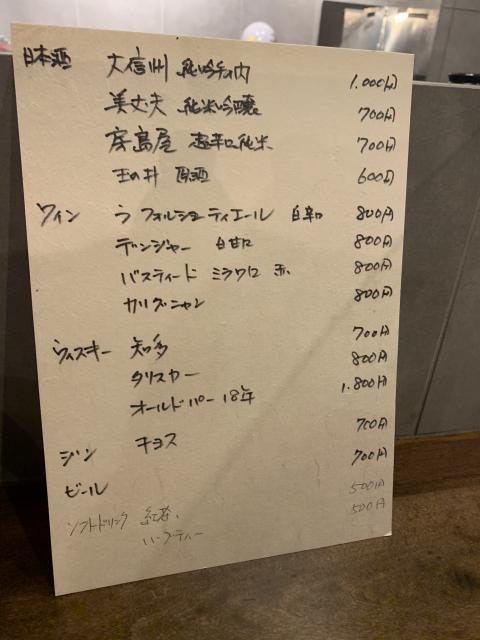 日本酒 大信州 純吟手いっぱい 1.000円
美丈夫 純米吟醸 700円
房島屋 超辛口純米 700円
玉の井 原酒 600円
ワイン ラ フォルショーティエール 白辛口 800円
デンジャー 白甘口 800円
バスティード ミラフロ 赤 800円
カリグニャン 800円
ウィスキー 知多 700円
タリスカー 800円
オールドパー 18年 1.800円
ジン キヨス 700円
ビール 700円
ソフトドリンク 紅茶、 500円
ハーブティー 500円